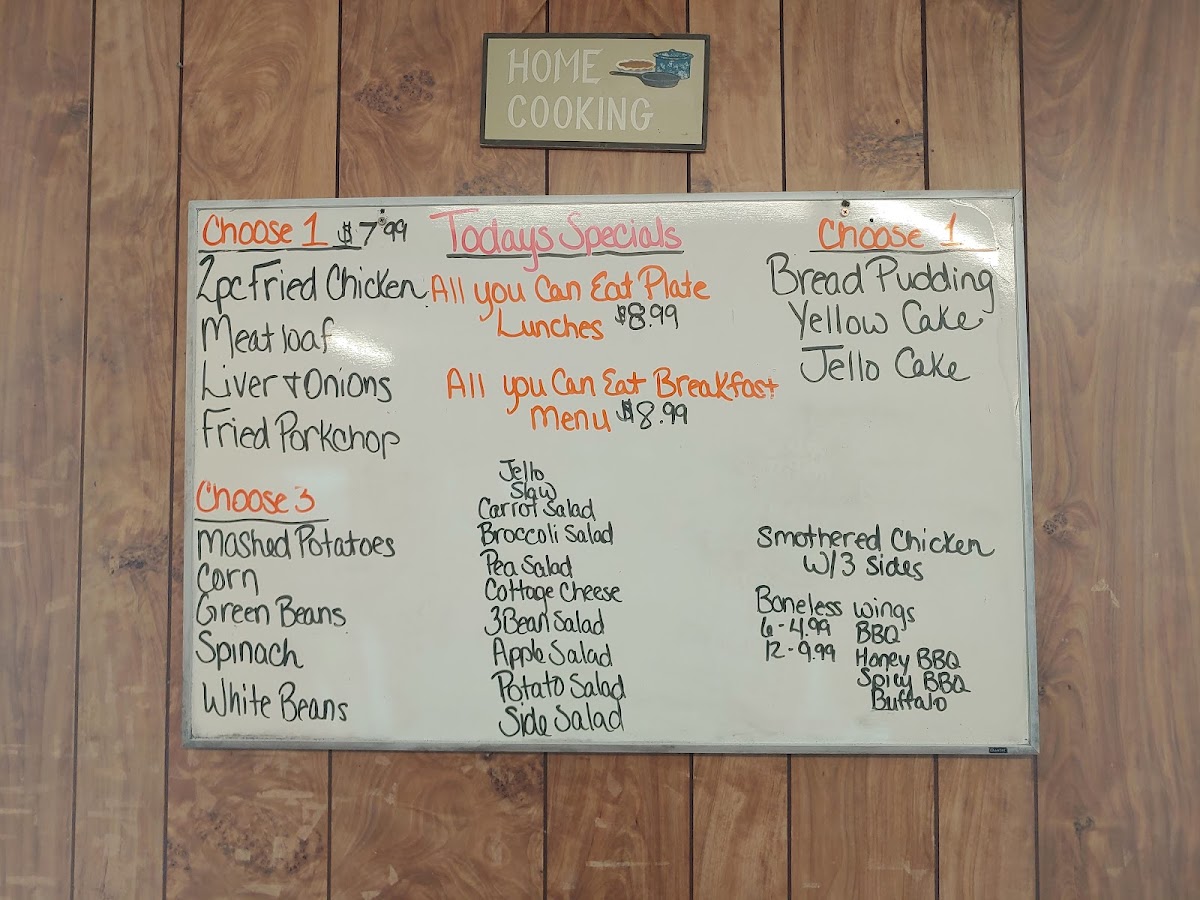 HOME
COOKING
Choose 1 $7.99
2pc Fried Chicken
Meatloaf
Liver & Onions
Fried Porkchop
Choose 3
Mashed Potatoes
Corn
Green Beans
Spinach
White Beans
Todays Specials
All you Can Eat Plate
Lunches $8.99
All you Can Eat Breakfast
Menu $8.99
Jello
Slaw
Carrot Salad
Broccoli Salad
Pea Salad
Cottage Cheese
3 Bean Salad
Apple Salad
Potato Salad
Side Salad
Choose 1
Bread Pudding
Yellow Cake
Jello Cake
Smothered Chicken
W/3 Sides
Boneless wings
6 - 4.99 BBQ
12 - 9.99 Honey BBQ
Spicy BBQ
Buffalo